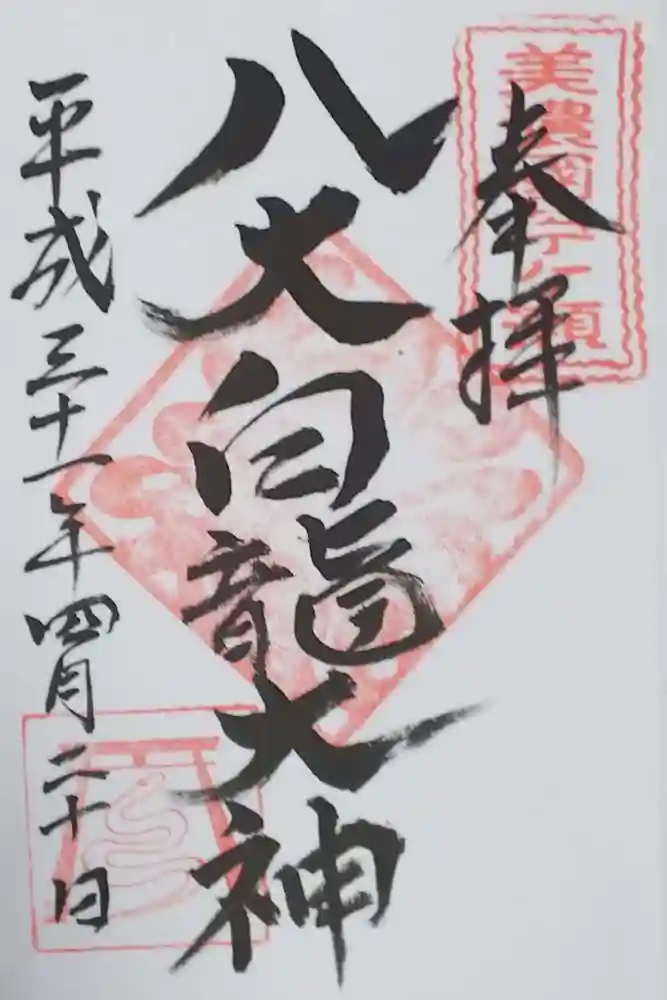 美濃國苧ヶ瀬
奉拝
八大白龍大神
平成三十一年四月二十日